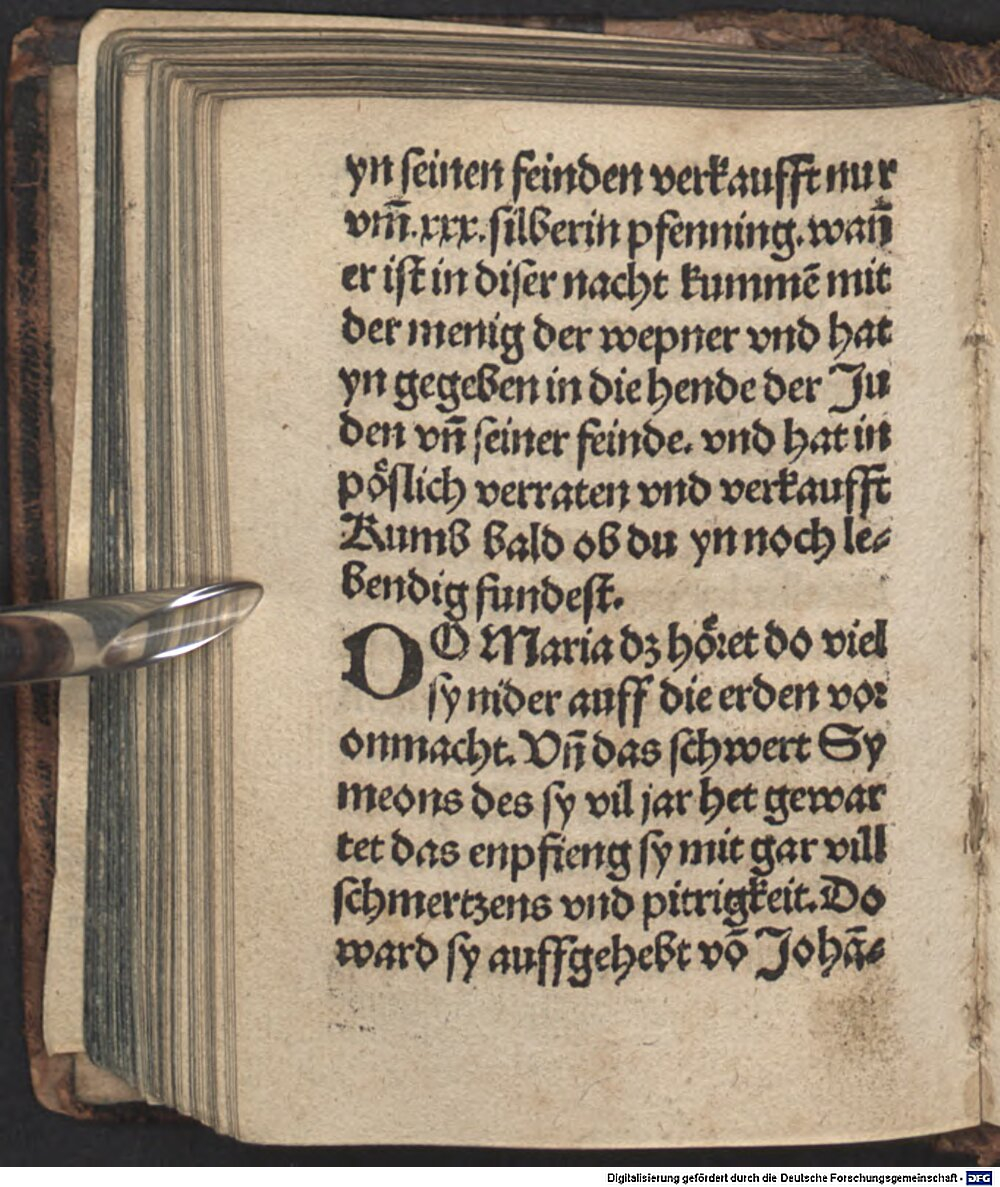 yn ſeinen feinden verkaufft nur
vm̄.xxx.ſilberin pfenning.wan̄
er iſt in diſer nacht kummē mit
der menig der wepner vnd hat
yn gegeben in die hende der Ju
den vn̄ ſeiner feinde. vnd hat in
poͤſlich verraten vnd verkaufft
Kumb bald ob du yn noch le⸗
bendig fundeſt.
DO Maria dz hoͤꝛet do viel
ſy nider auff die erden voꝛ
onmacht. Vn̄ das ſchwert Sy
meons des ſy vil jar het gewar
tet das enpfieng ſy mit gar vill
ſchmertzens vnd pitrigkeit. Do
ward ſy auffgehebt vō Johā⸗
Digitalisierung gefördert durch die Deutsche Forschungsgemeinschaft - DFG